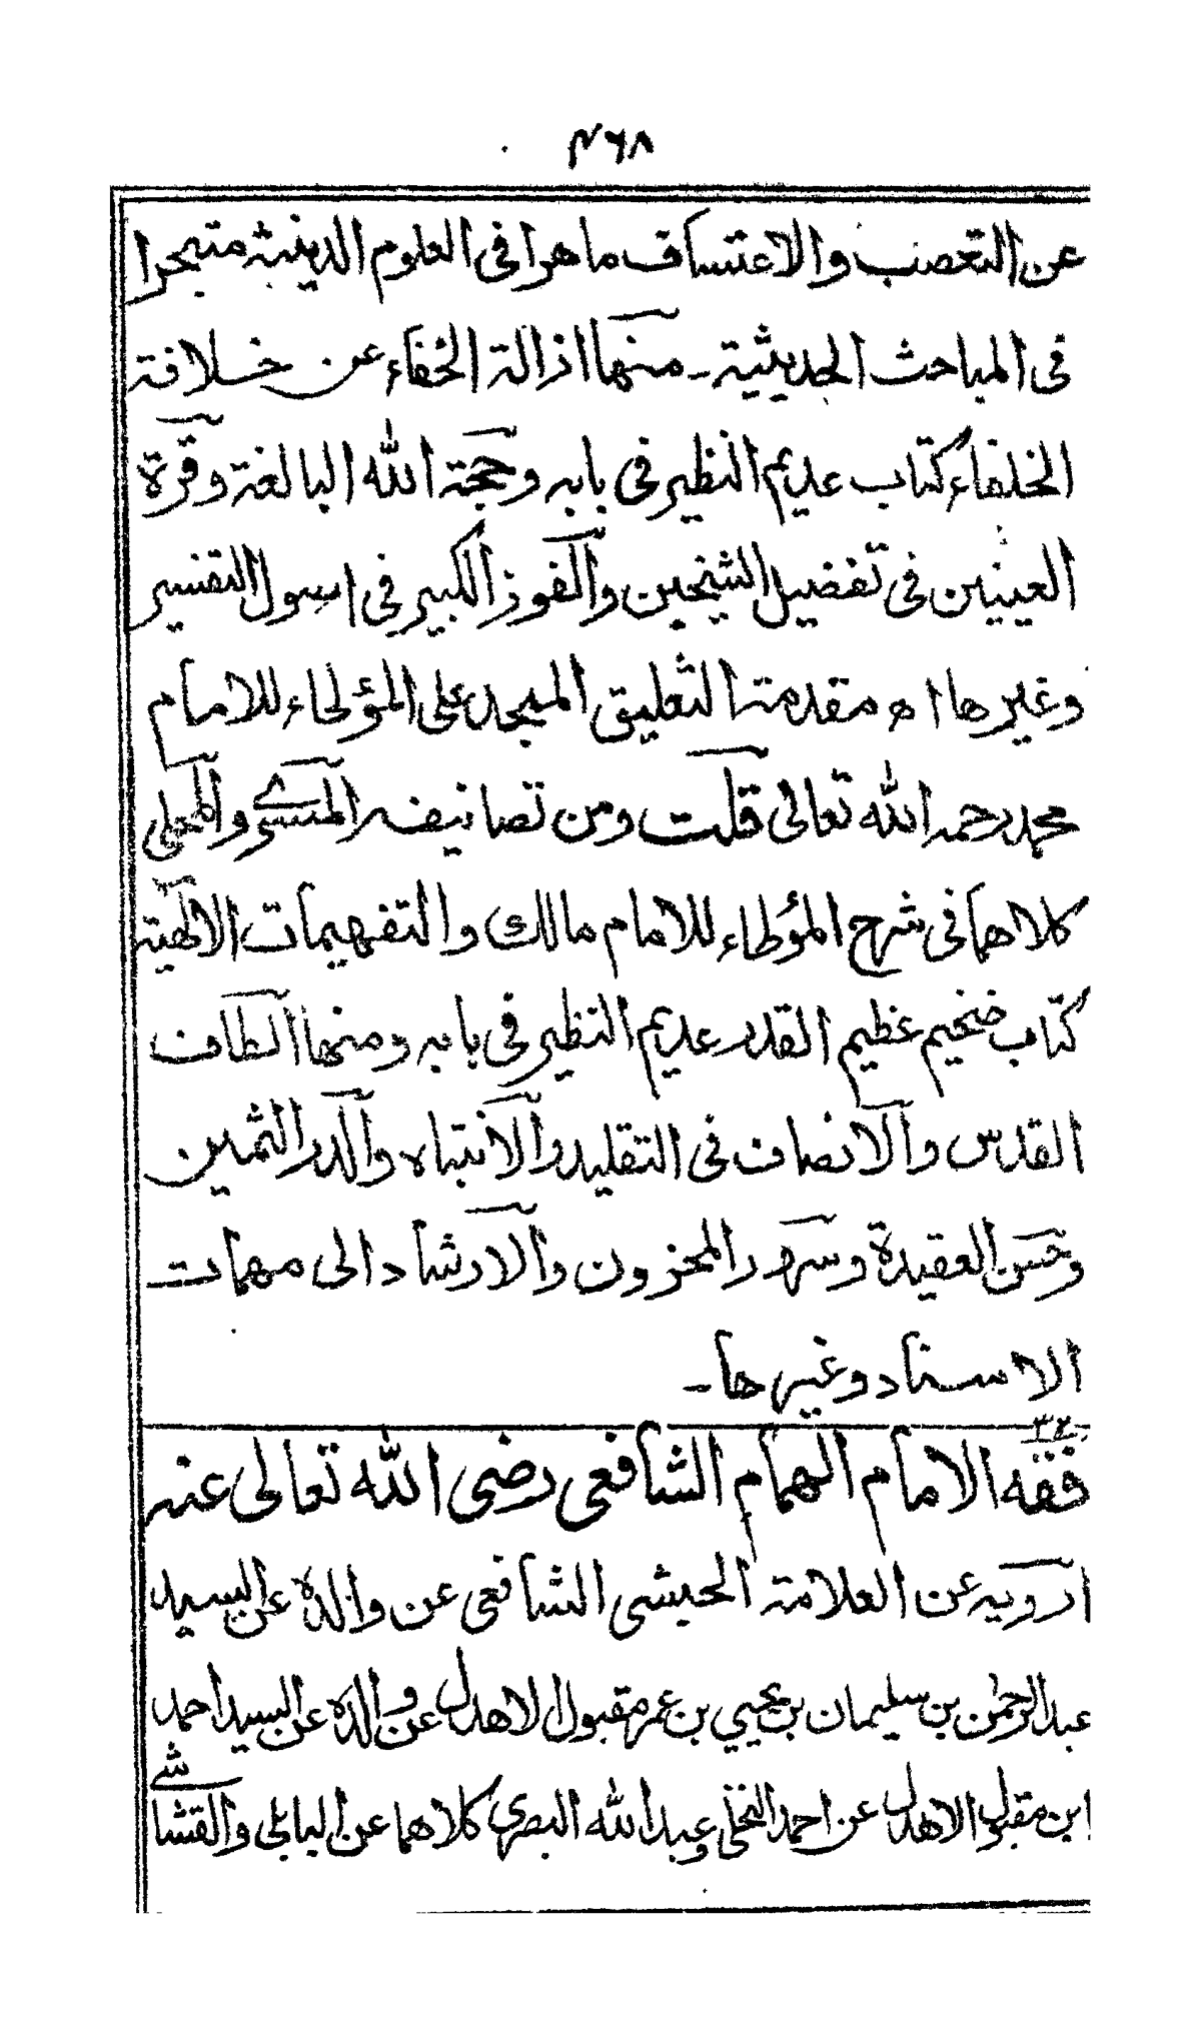 ۴۶۸
عن التعصب والاعتساف ماهرا فى العلوم الدينية متبحرا
فى المباحث الحديثية ـ منها ازالة الخفاء عن خلافة
الخلفاء كتاب عديم النظير فى بابه وحجة الله البالغة وقرة
العينين فى تفضيل الشيخين والفوز الكبير فى اصول التفسير
وغيرها اه مقدمة التعليق الممجد على المؤطاء للامام
محمد رحمه الله تعالى قلت ومن تصانيفه المسوى والمحلى
كلاهما فى شرح المؤطاء للامام مالك والتفهيمات الالهية
كتاب ضخيم عظيم القدر عديم النظير فى بابه ومنها الطاف
القدس والانصاف فى التقليد والانتباه والدر الثمين
وحسن العقيدة وسرور المحزون والارشاد الى مهمات
الاسناد وغيرها ـ
فقه الامام الهمام الشافعى رضى الله تعالى عنه
ارويه عن العلامة الحبشى الشافعى عن والده عن السيد
عبد الرحمن بن سليمان بن يحيي بن عمر مقبول الاهدل عن والده عن السيد احمد
ابن مقبول الاهدل عن احمد النخلى وعبد الله البصرى كلاهما عن البابلى والقشاشى